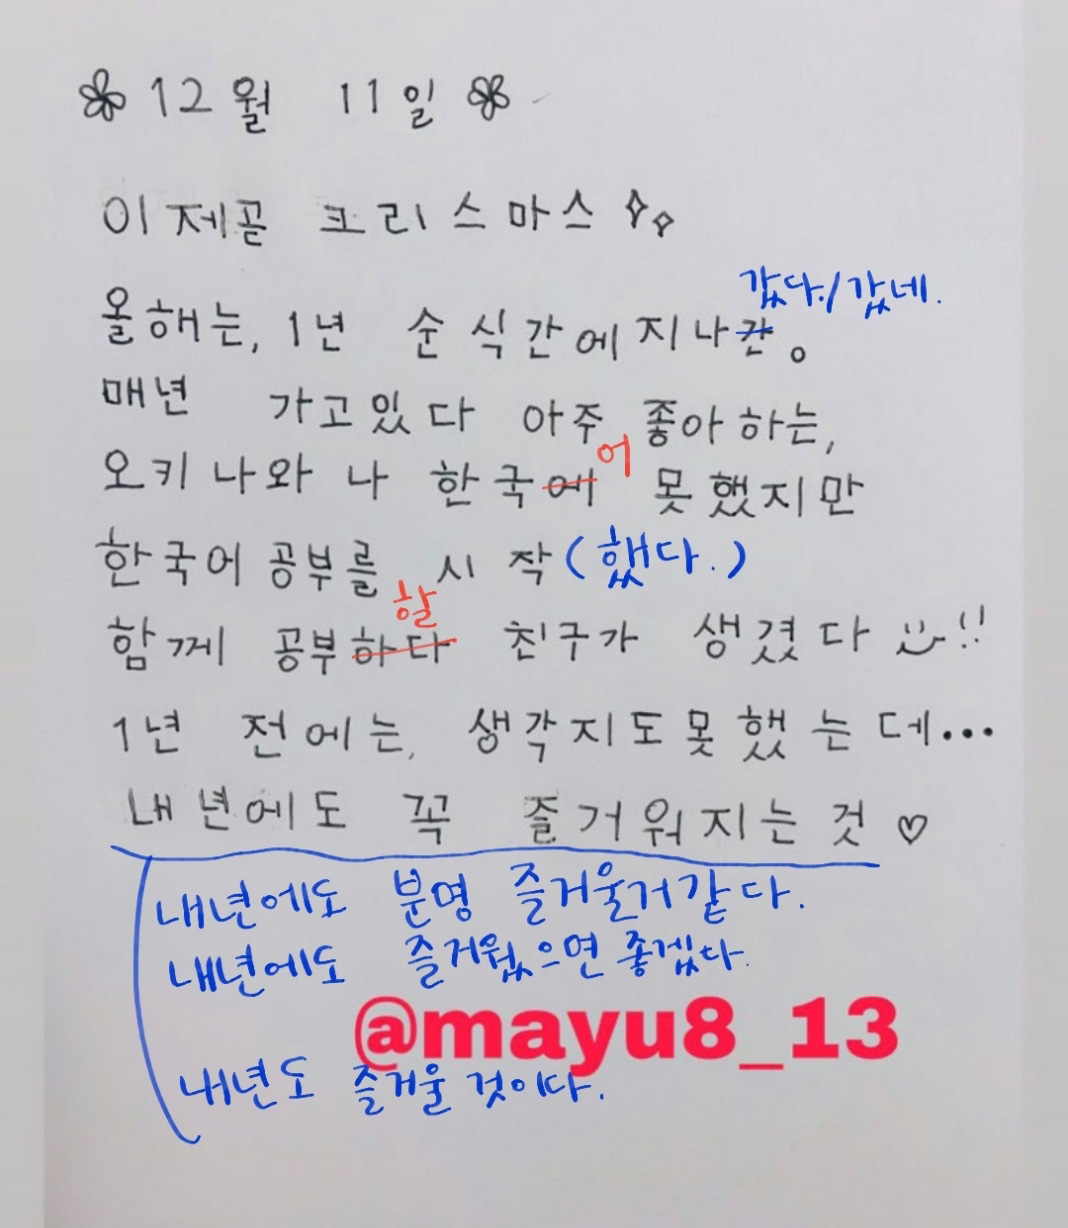 12월 11일
이제곧 크리스마스
갔다./갔네.
올해는, 1년 순식간에지나간。
매년 가고있다 아주 좋아하는,
어
오키나와나 한국에 못했지만
한국어 공부를 시작(했다.)
할
함께 공부하다 친구가 생겼다!!
1년 전에는, 생각지도못했는데...
내년에도 꼭 즐거워지는것♡
내년에도 분명 즐거울거같다.
내년에도 즐거웠으면 좋겠다.
@mayu8_13
내년도 즐거울 것이다.